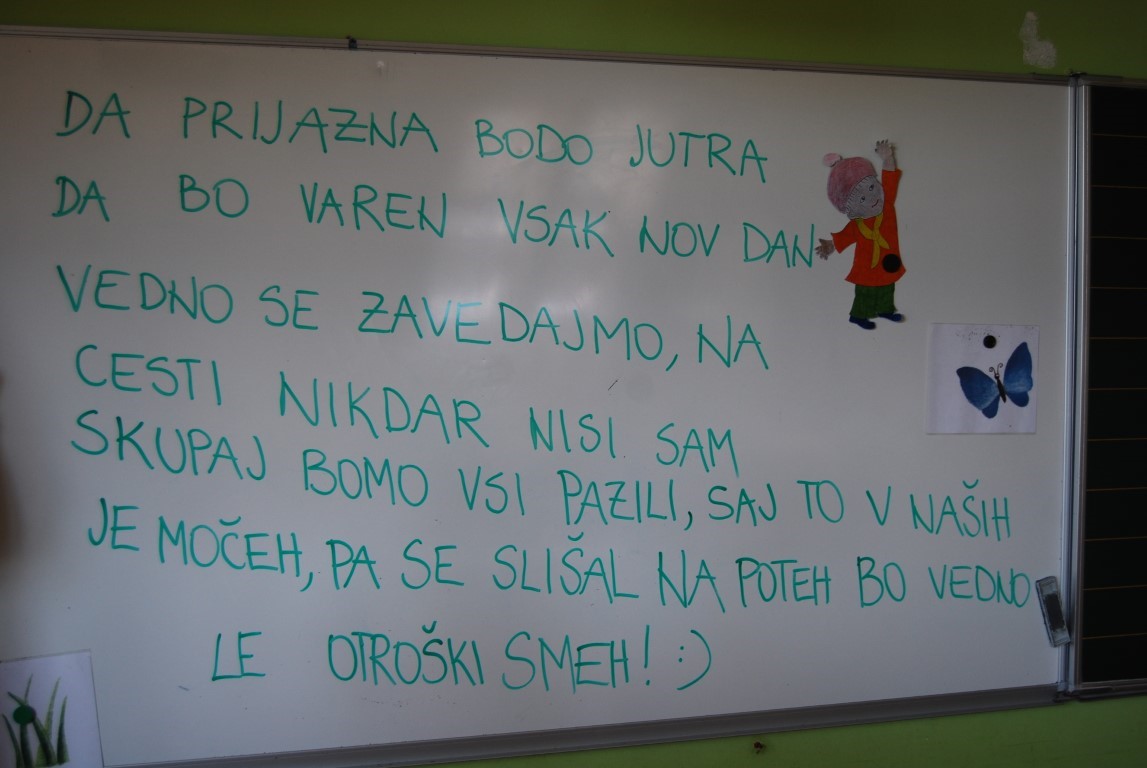 DA PRIJAZNA BODO JUTRA
DA BO VAREN VSAK NOV DAN
VEDNO SE ZAVEDAJMO, NA
CESTI NIKDAR NISI SAM
SKUPAJ BOMO VSI PAZILI, SAJ TO V NAŠIH
JE MOČEH, PA SE SLIŠAL NA POTEH BO VEDNO
LE OTROŠKI SMEH! :)